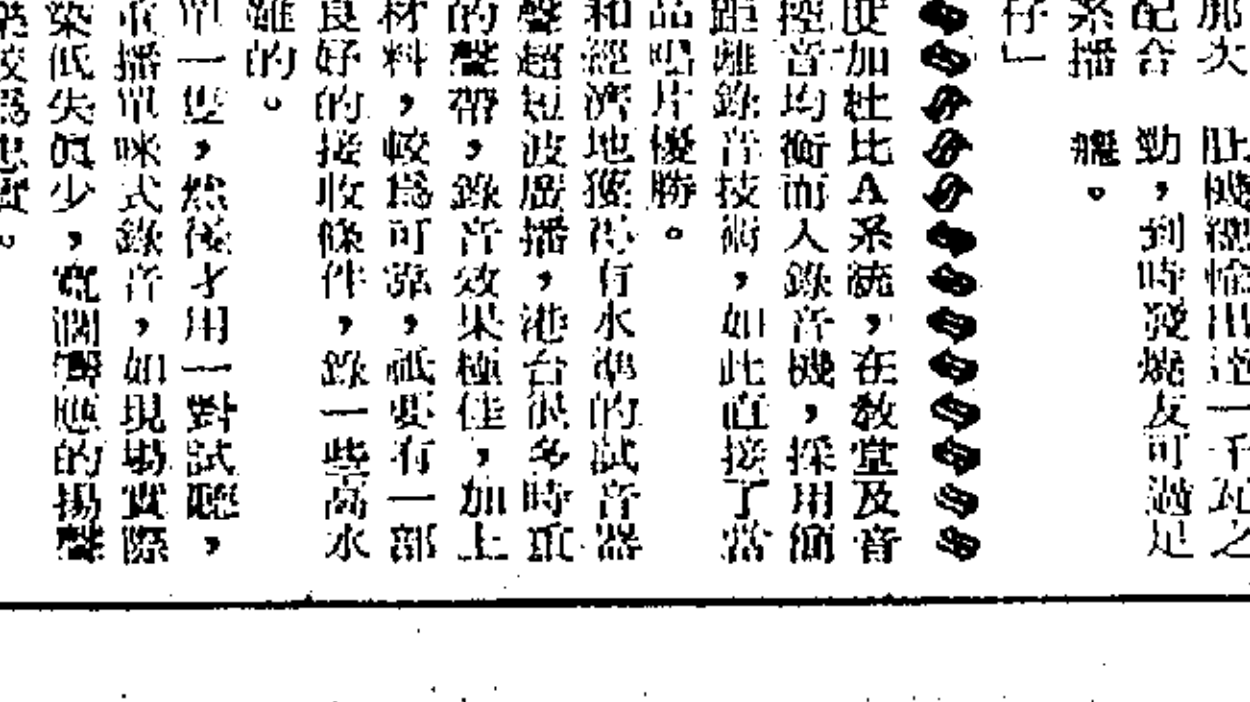 那次
肚機總輸出達一千瓦之
配合
勁，到時發燒友可過足
系播
癮。
仔」
度加杜比A系統，在教堂及音
控音均衡而入錄音機，採用簡
距離錄音技術，如此直接了當
品唱片優勝。
和經濟地獲得有水準的試音器
聲超短波廣播，港台很多時重
的聲帶，錄音效果極佳，加上
材料，較爲可靠，祇要有一部
良好的接收條件，錄一些高水
難的。
單一隻，然後才用一對試聽，
重播單咪式錄音，如現場實際
染低失眞少，寬濶響應的揚聲
較爲忠實。